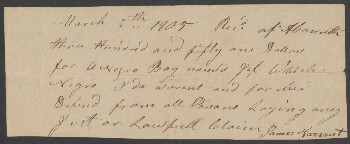 March 5th 1805 Recd of Alexander
three Hundred and fifty one Dollars
for a Negro Boy named which
Negro I do warent and for Ever
Defend from all Persons Laying any
Just or Lawfull Claim James Tarrant